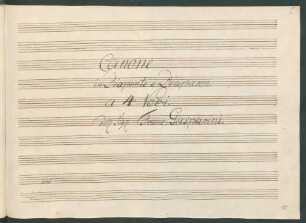 Canone
in Diapente e Diapason
a 4 Voci.
Del Sig.r Franc. Gasparini.